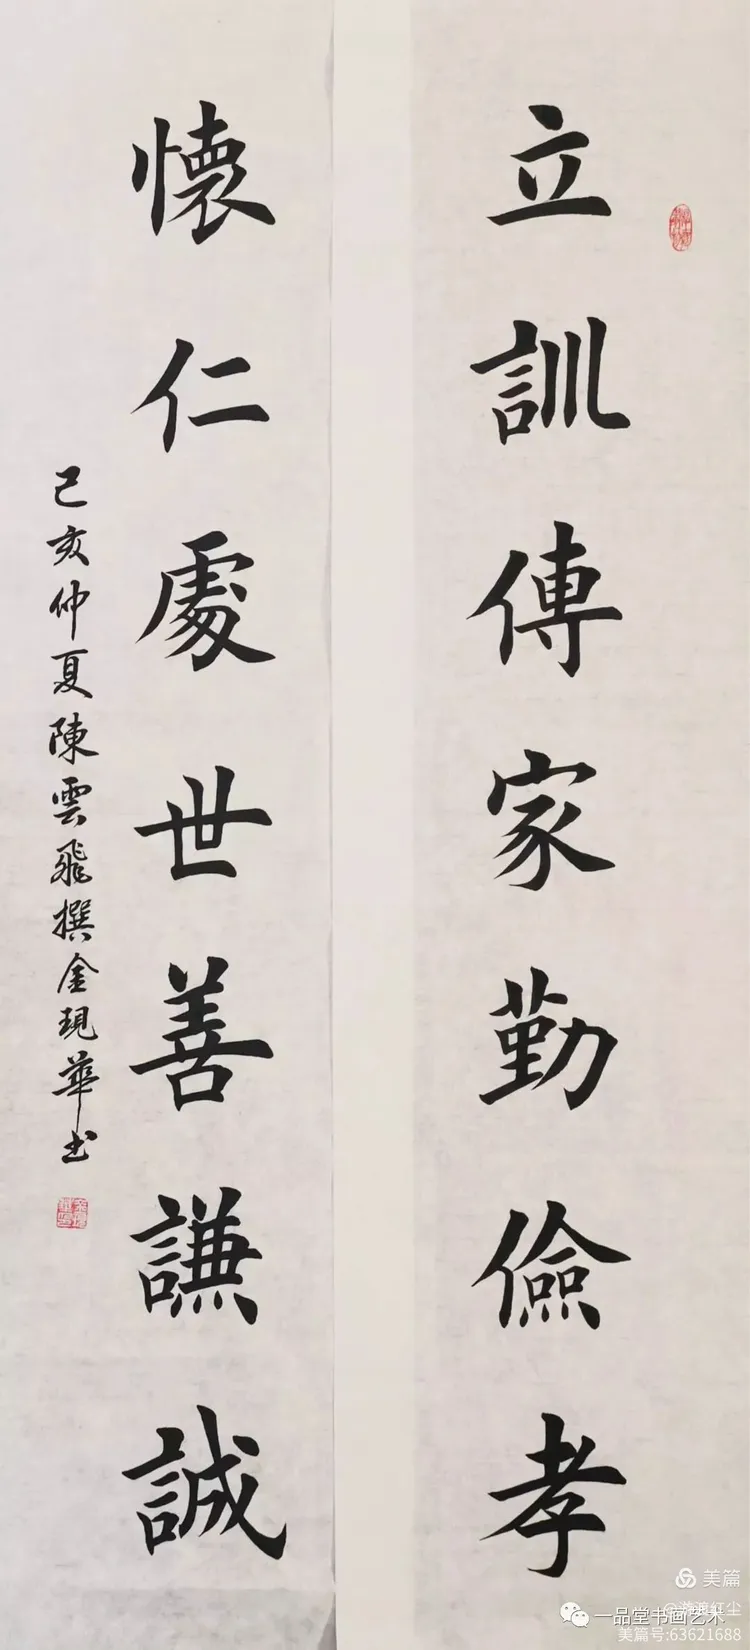 立訓傳家勤儉孝
懷仁處世善謙誠
己亥仲夏陳雲飛撰金現華书
美篇
一品堂书画艺术
美篇号:63621688